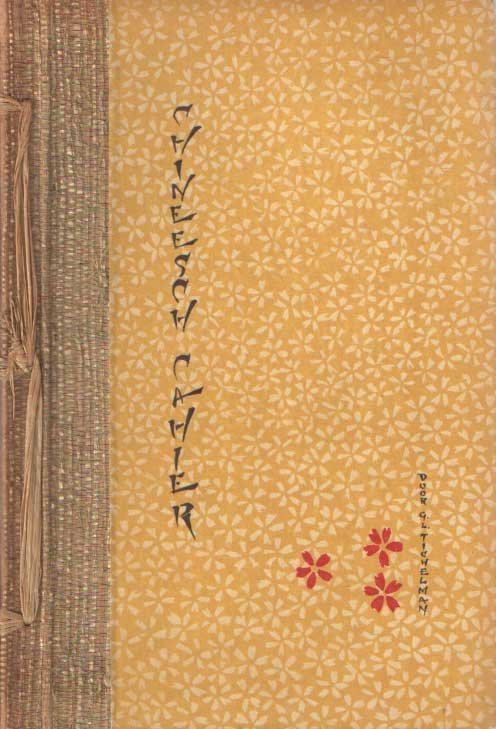 CHINEESCH CAHIER
DOOR G.L. TICHELMAN